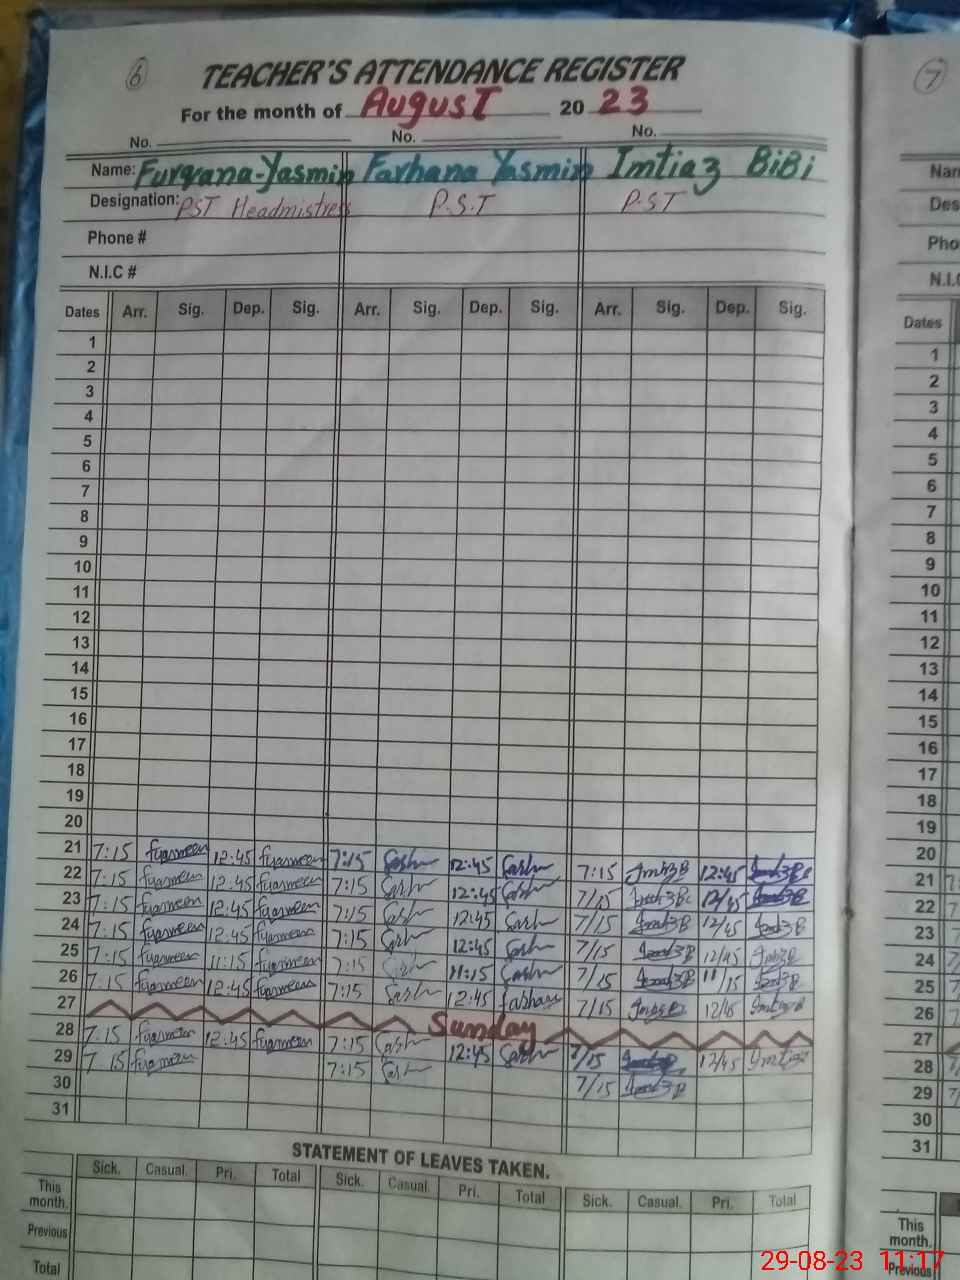 6
7
TEACHER'S ATTENDANCE REGISTER
For the month of August 20 23
No. No. No.
Name: Furqana-Yasmin Farhana Yasmin Imtiaz BiBi
Designation: PST Headmistress P.S.T P.S.T
Phone #
N.I.C #
Dates Arr. Sig. Dep. Sig. Arr. Sig. Dep. Sig. Arr. Sig. Dep. Sig.
1
2
3
4
5
6
7
8
9
10
11
12
13
14
15
16
17
18
19
20
21 7:15 fyasmeen 12:45 fyasmeen 7:15 12:45 7:15 12:45
22 7:15 fyasmeen 12:45 fyasmeen 7:15 12:45 7/15 12/45
23 7:15 fyasmeen 12:45 fyasmeen 7:15 12:45 7/15 12/45
24 7:15 fyasmeen 12:45 fyasmeen 7:15 12:45 7/15 12/45
25 7:15 fyasmeen 11:15 fyasmeen 7:15 11:15 7/15 11/15
26 7:15 fyasmeen 12:45 fyasmeen 7:15 12:45 farhana 7/15 12/45
27 Sunday
28 7:15 fyasmeen 12:45 fyasmeen 7:15 12:45 7/15 12/45
29 7:15 fyasmeen 7:15 7/15
30
31
STATEMENT OF LEAVES TAKEN.
Sick. Casual. Pri. Total Sick. Casual. Pri. Total Sick. Casual. Pri. Total
This month.
Previous
Total
Dates
1
2
3
4
5
6
7
8
9
10
11
12
13
14
15
16
17
18
19
20
21
22
23
24
25
26
27
28
29
30
31
This month.
Previous
29-08-23 11:17